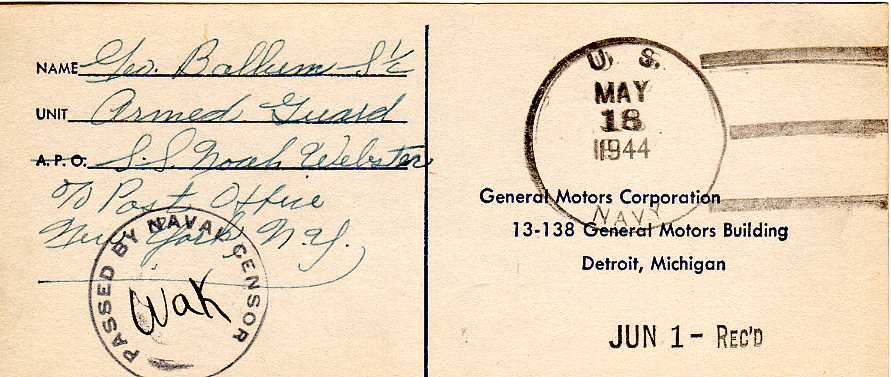 NAME Geo. Ballum S 1/c
UNIT Armed Guard
A.P.O. S.S. Noah Webster
c/o Post Office
New York, N.Y.
PASSED BY NAVAL CENSOR
WaK
U. S.
MAY
18
1944
NAVY
General Motors Corporation
13-138 General Motors Building
Detroit, Michigan
JUN 1 - REC'D